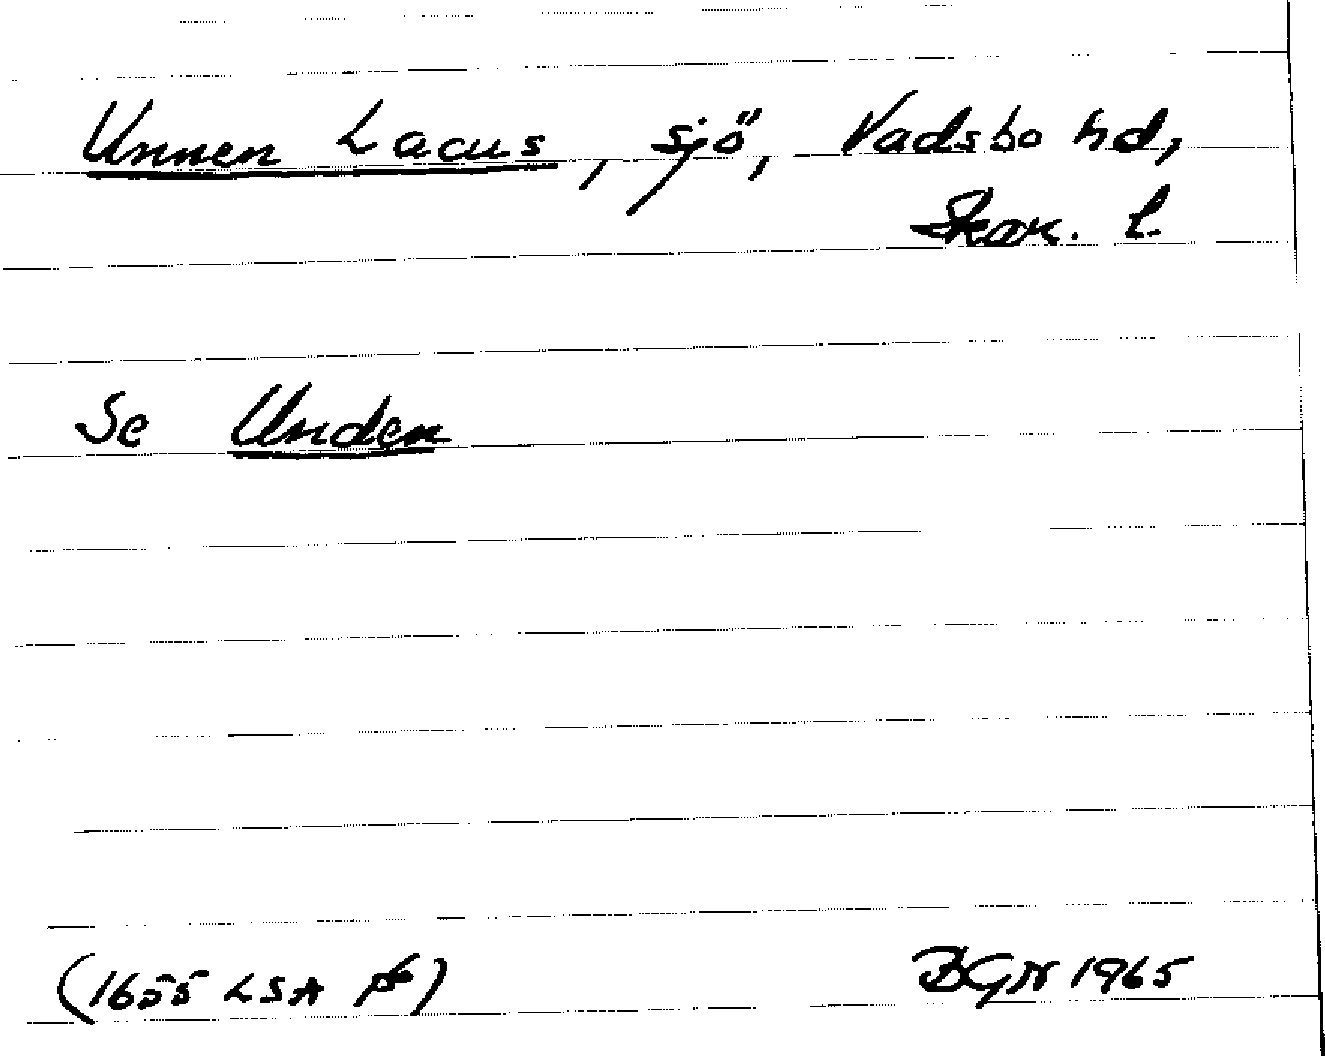 Unnen Lacus, sjö, Vadsbo hd,
Skar. l.
Se Unden
(1655 LSA
BGN 1965